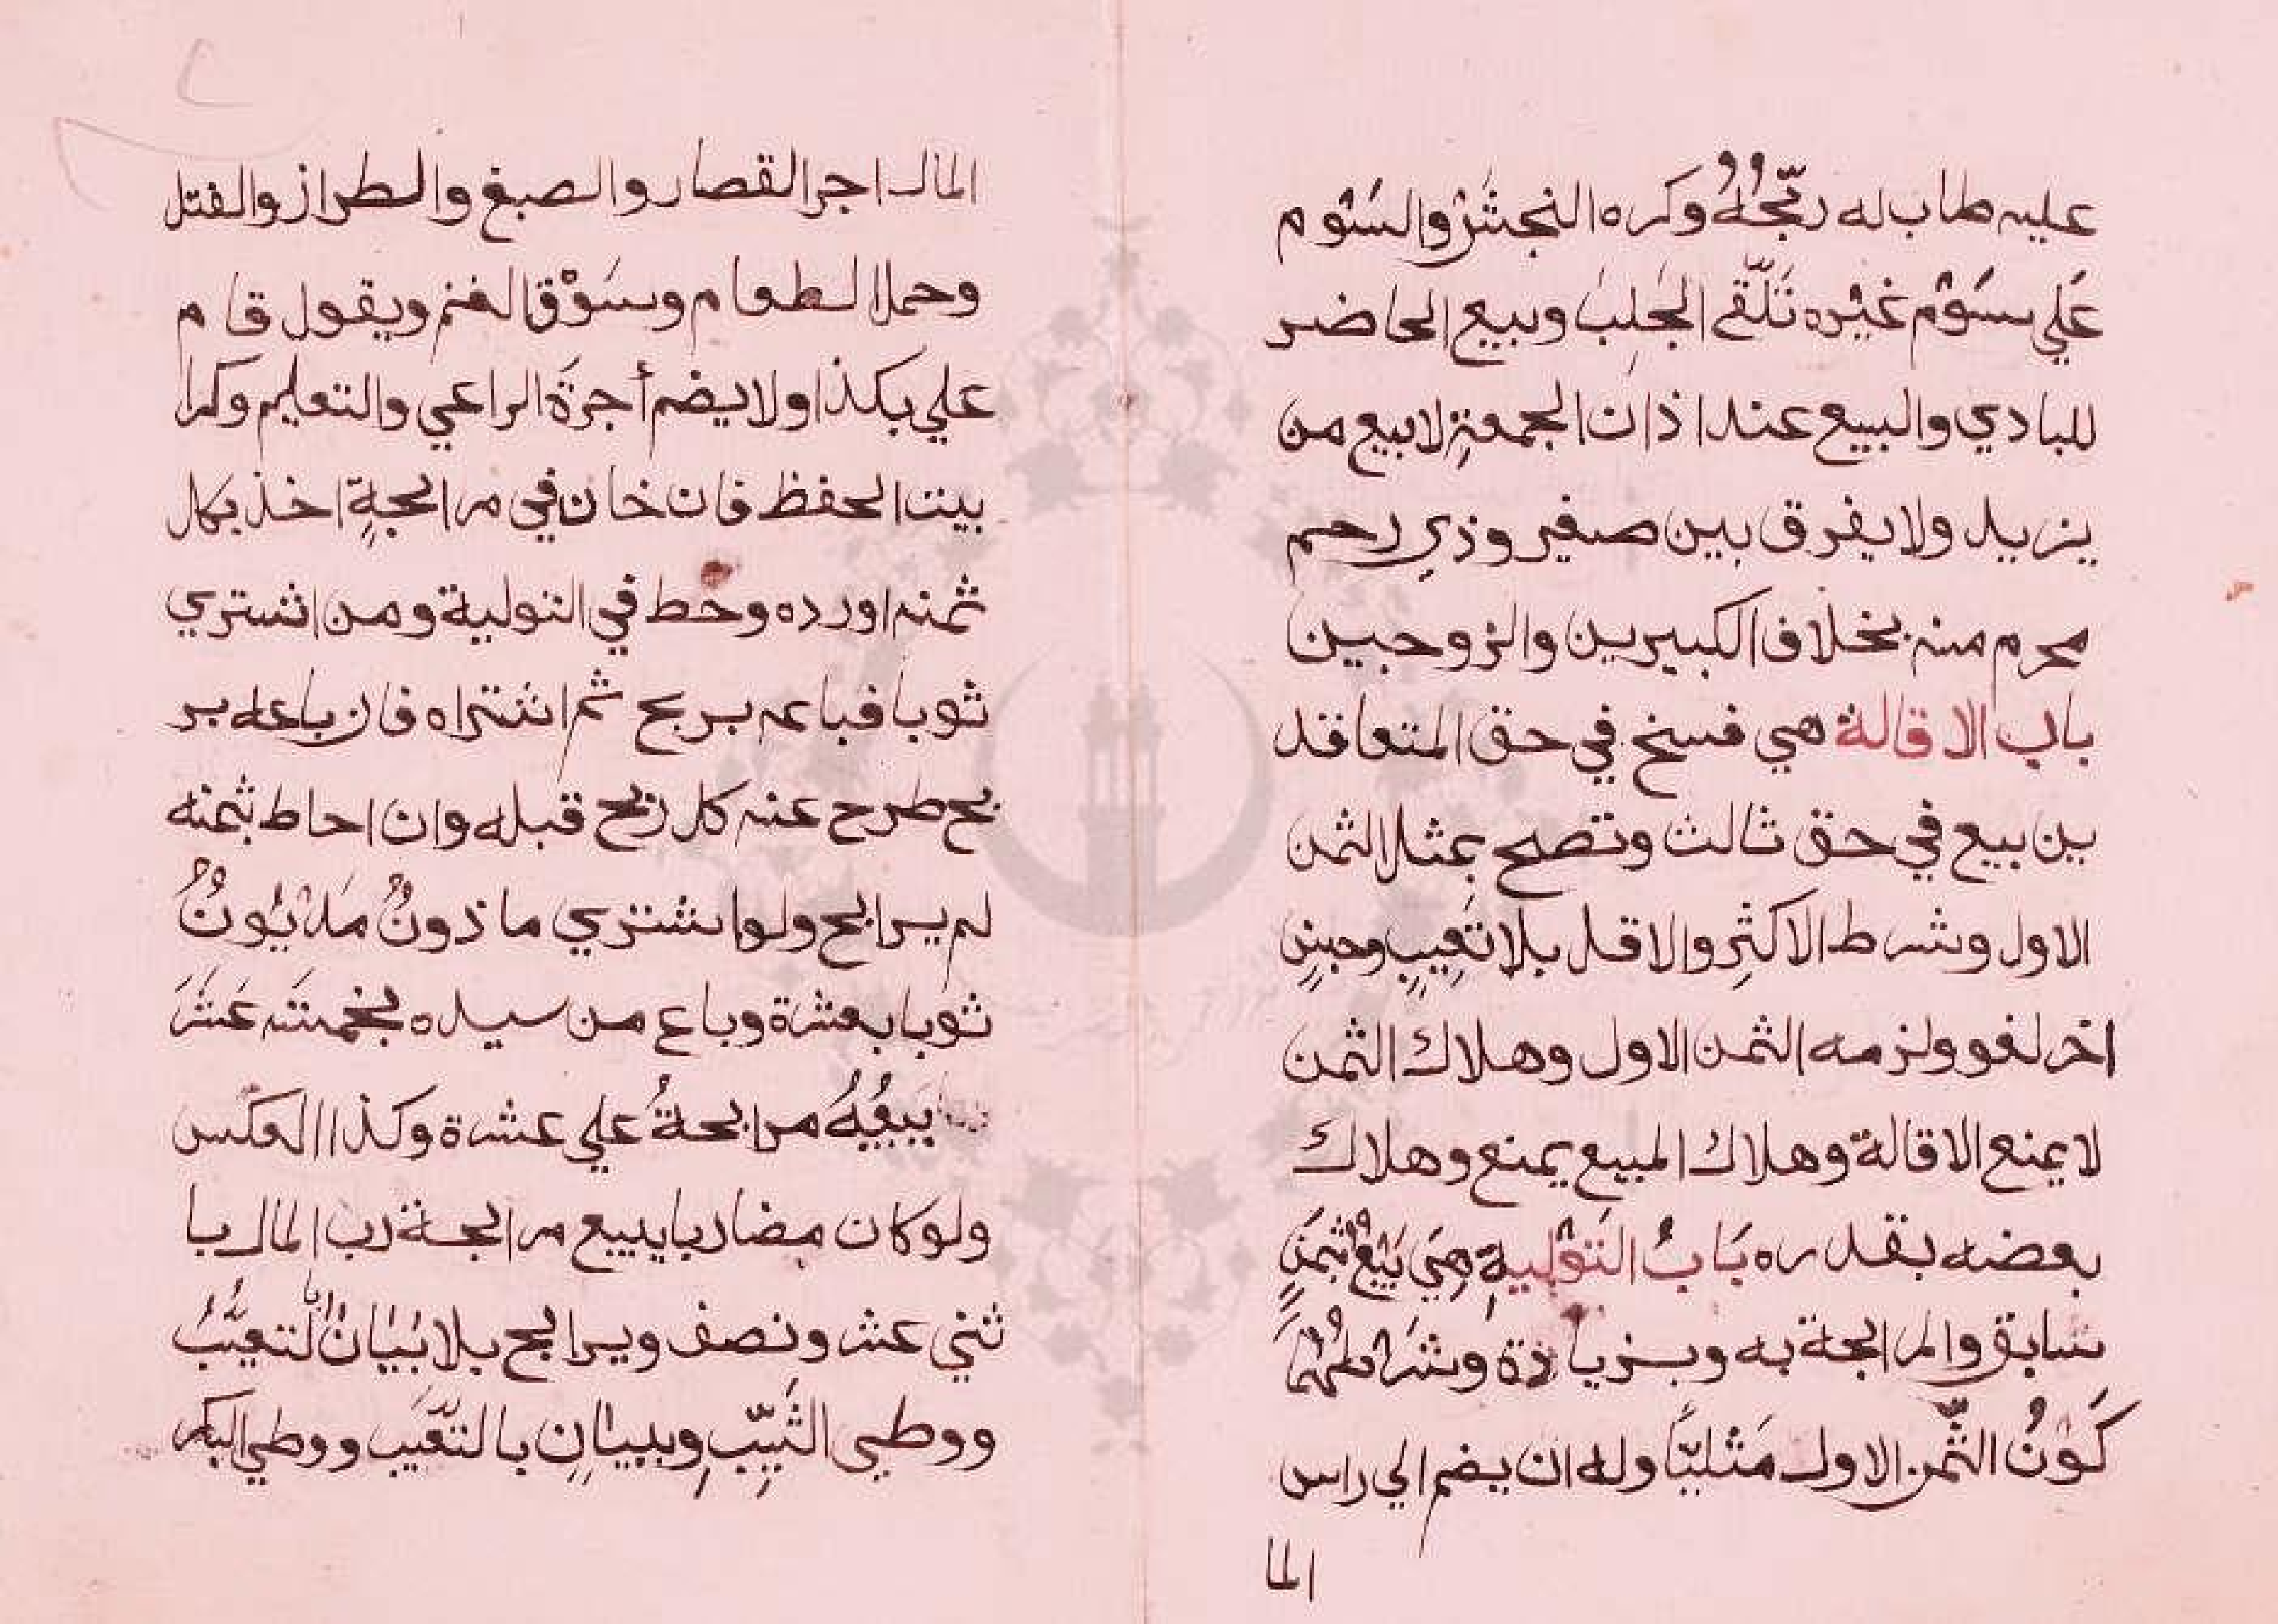 عليه طاب له ربحُهُ وكره النجش والسَوْم
عَلي سَوْم غيْره تَلَقّي الجَلبَ وبيع الحاضر
للبادي والبيع عند اذان الجمعةِ لا بيع من
يزيد ولا يفرق بين صغير وذي رحم
محرم منه بخلاف الكبيرين والزوجين
باب الاقالة هي فسخ في حق المتعاقد
ين بيع في حق ثالث وتصح بمثل الثمن
الاول وشرط الاكثرِ والاقل بلا تَعِيبٍ وجنسٍ
اخر لغو ولزمه الثمن الاول وهلاك الثمن
لا يمنع الاقالة وهلاك المبيع يمنع وهلاك
بعضه بقدره بَابُ التَوْليةِ هِيَ بَيْعٌ بثمَنٍ
سابق والمرابحة به وبزيادة وشَرْطُهُمَا
كَوْنُ الثّمن الاول مَثليّاً وله ان يضم الي راس
الما
المال اجر القصار والصبغ والطراز والفتل
وحمل الطعام وسَوْق الغنم ويقول قام
علي بكذا ولا يضم أجرةَ الراعي والتعليم وكرا
بيت الحفظ فان خان في مرابحةٍ اخذ بكل
ثمنه اورده وحط في التولية ومن اشتري
ثوبا فباعه بربح ثم اشتراه فان باعه بر
بح طرح عنه كل ربح قبله وان احاط بثمنه
لم يرابح ولو اشتري ماذونٌ مَدْيُونٌ
ثوبا بعشرة وباع من سيده بخمسَته عَشَرَ
يَبيعُهُ مرابحةُ علي عشرة وكذا العكس
ولو كان مضاربا يبيع مرابحة رب المال با
ثني عشر ونصف ويرابح بلا بَيَانُ التعيُّبُ
ووطي الثَيِّبِ وببيانِ بالتّعَيب ووطي البكر